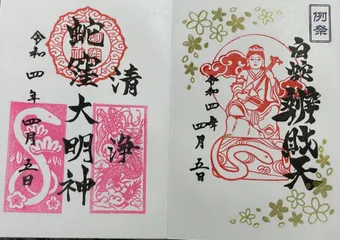 例祭
白蛇辨財天
令和四年
四月五日
清浄
蛇窪大明神
令和四年四月五日